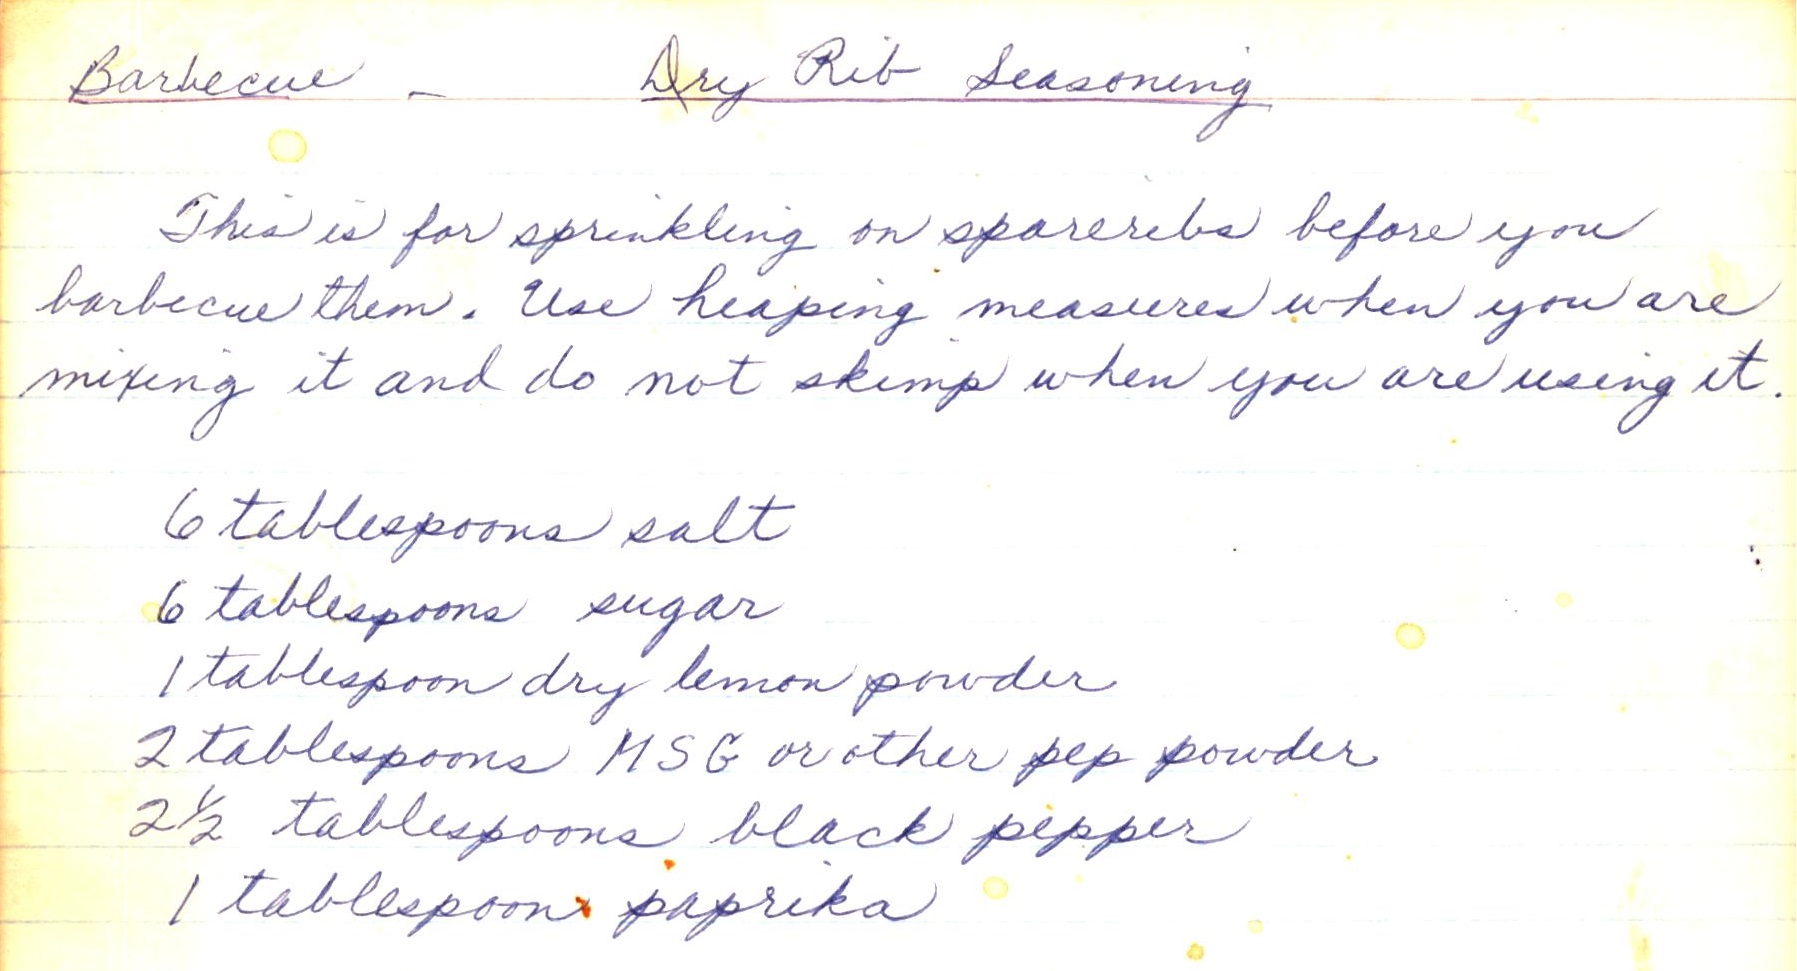 Barbecue - Dry Rib Seasoning
This is for sprinkling on spareribs before you
barbecue them. Use heaping measures when you are
mixing it and do not skimp when you are using it.
6 tablespoons salt
6 tablespoons sugar
1 tablespoon dry lemon powder
2 tablespoons MSG or other pep powder
2 1/2 tablespoons black pepper
1 tablespoon paprika